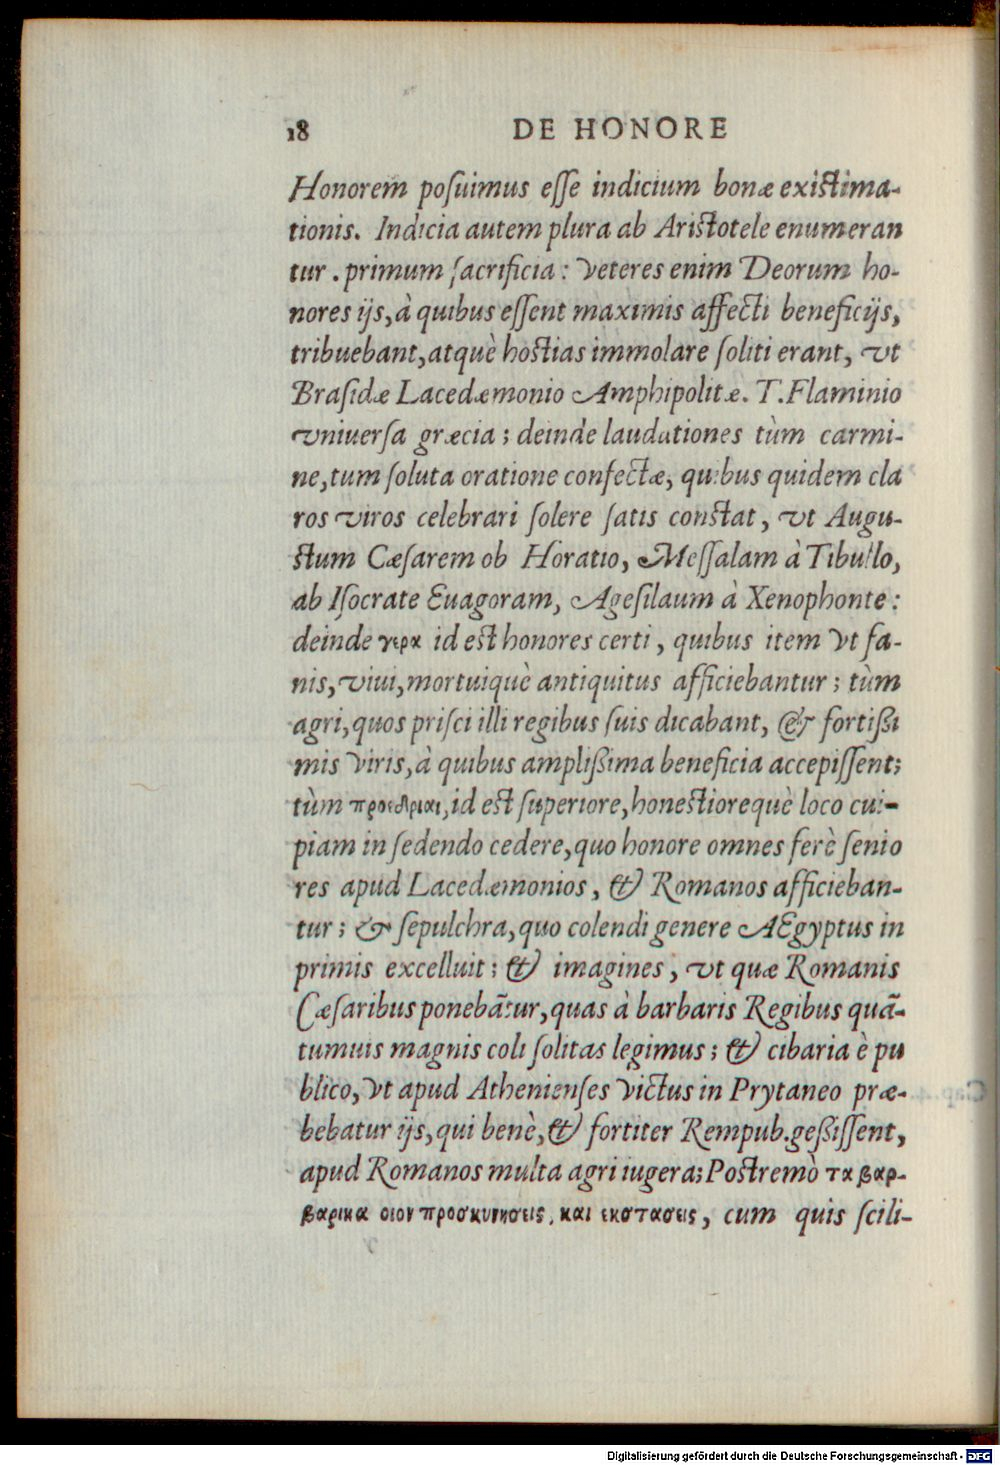 18 DE HONORE
Honorem posuimus esse indicium bonæ existima-
tionis. Indicia autem plura ab Aristotele enumeran
tur. primum sacrificia: Veteres enim Deorum ho-
nores ijs, à quibus essent maximis affecti beneficijs,
tribuebant, atquè hostias immolare soliti erant, vt
Brasidæ Lacedæmonio Amphipolitæ. T. Flaminio
vniuersa græcia; deinde laudationes tùm carmi-
ne, tum soluta oratione confectæ, quibus quidem cla
ros viros celebrari solere satis constat, vt Augu-
stum Cæsarem ob Horatio, Messalam à Tibullo,
ab Isocrate Euagoram, Agesilaum à Xenophonte:
deinde γερα id est honores certi, quibus item Vt fa-
nis, viui, mortuiquè antiquitus afficiebantur; tùm
agri, quos prisci illi regibus suis dicabant, & fortißi
mis Viris, à quibus amplißima beneficia accepissent;
tùm προεδριαι, id est superiore, honestiorequè loco cui-
piam in sedendo cedere, quo honore omnes ferè senio
res apud Lacedæmonios, & Romanos afficieban-
tur; & sepulchra, quo colendi genere AEgyptus in
primis excelluit; & imagines, vt quæ Romanis
Cæsaribus ponebãtur, quas à barbaris Regibus quã-
tumuis magnis coli solitas legimus; & cibaria è pu
blico, Vt apud Athenienses Victus in Prytaneo præ-
bebatur ijs, qui benè, & fortiter Rempub. geßissent,
apud Romanos multa agri iugera; Postremò τα βαρ-
βαρικα οιον προσκυνησεις, και εκστασεις, cum quis scili-
Digitalisierung gefördert durch die Deutsche Forschungsgemeinschaft - DFG